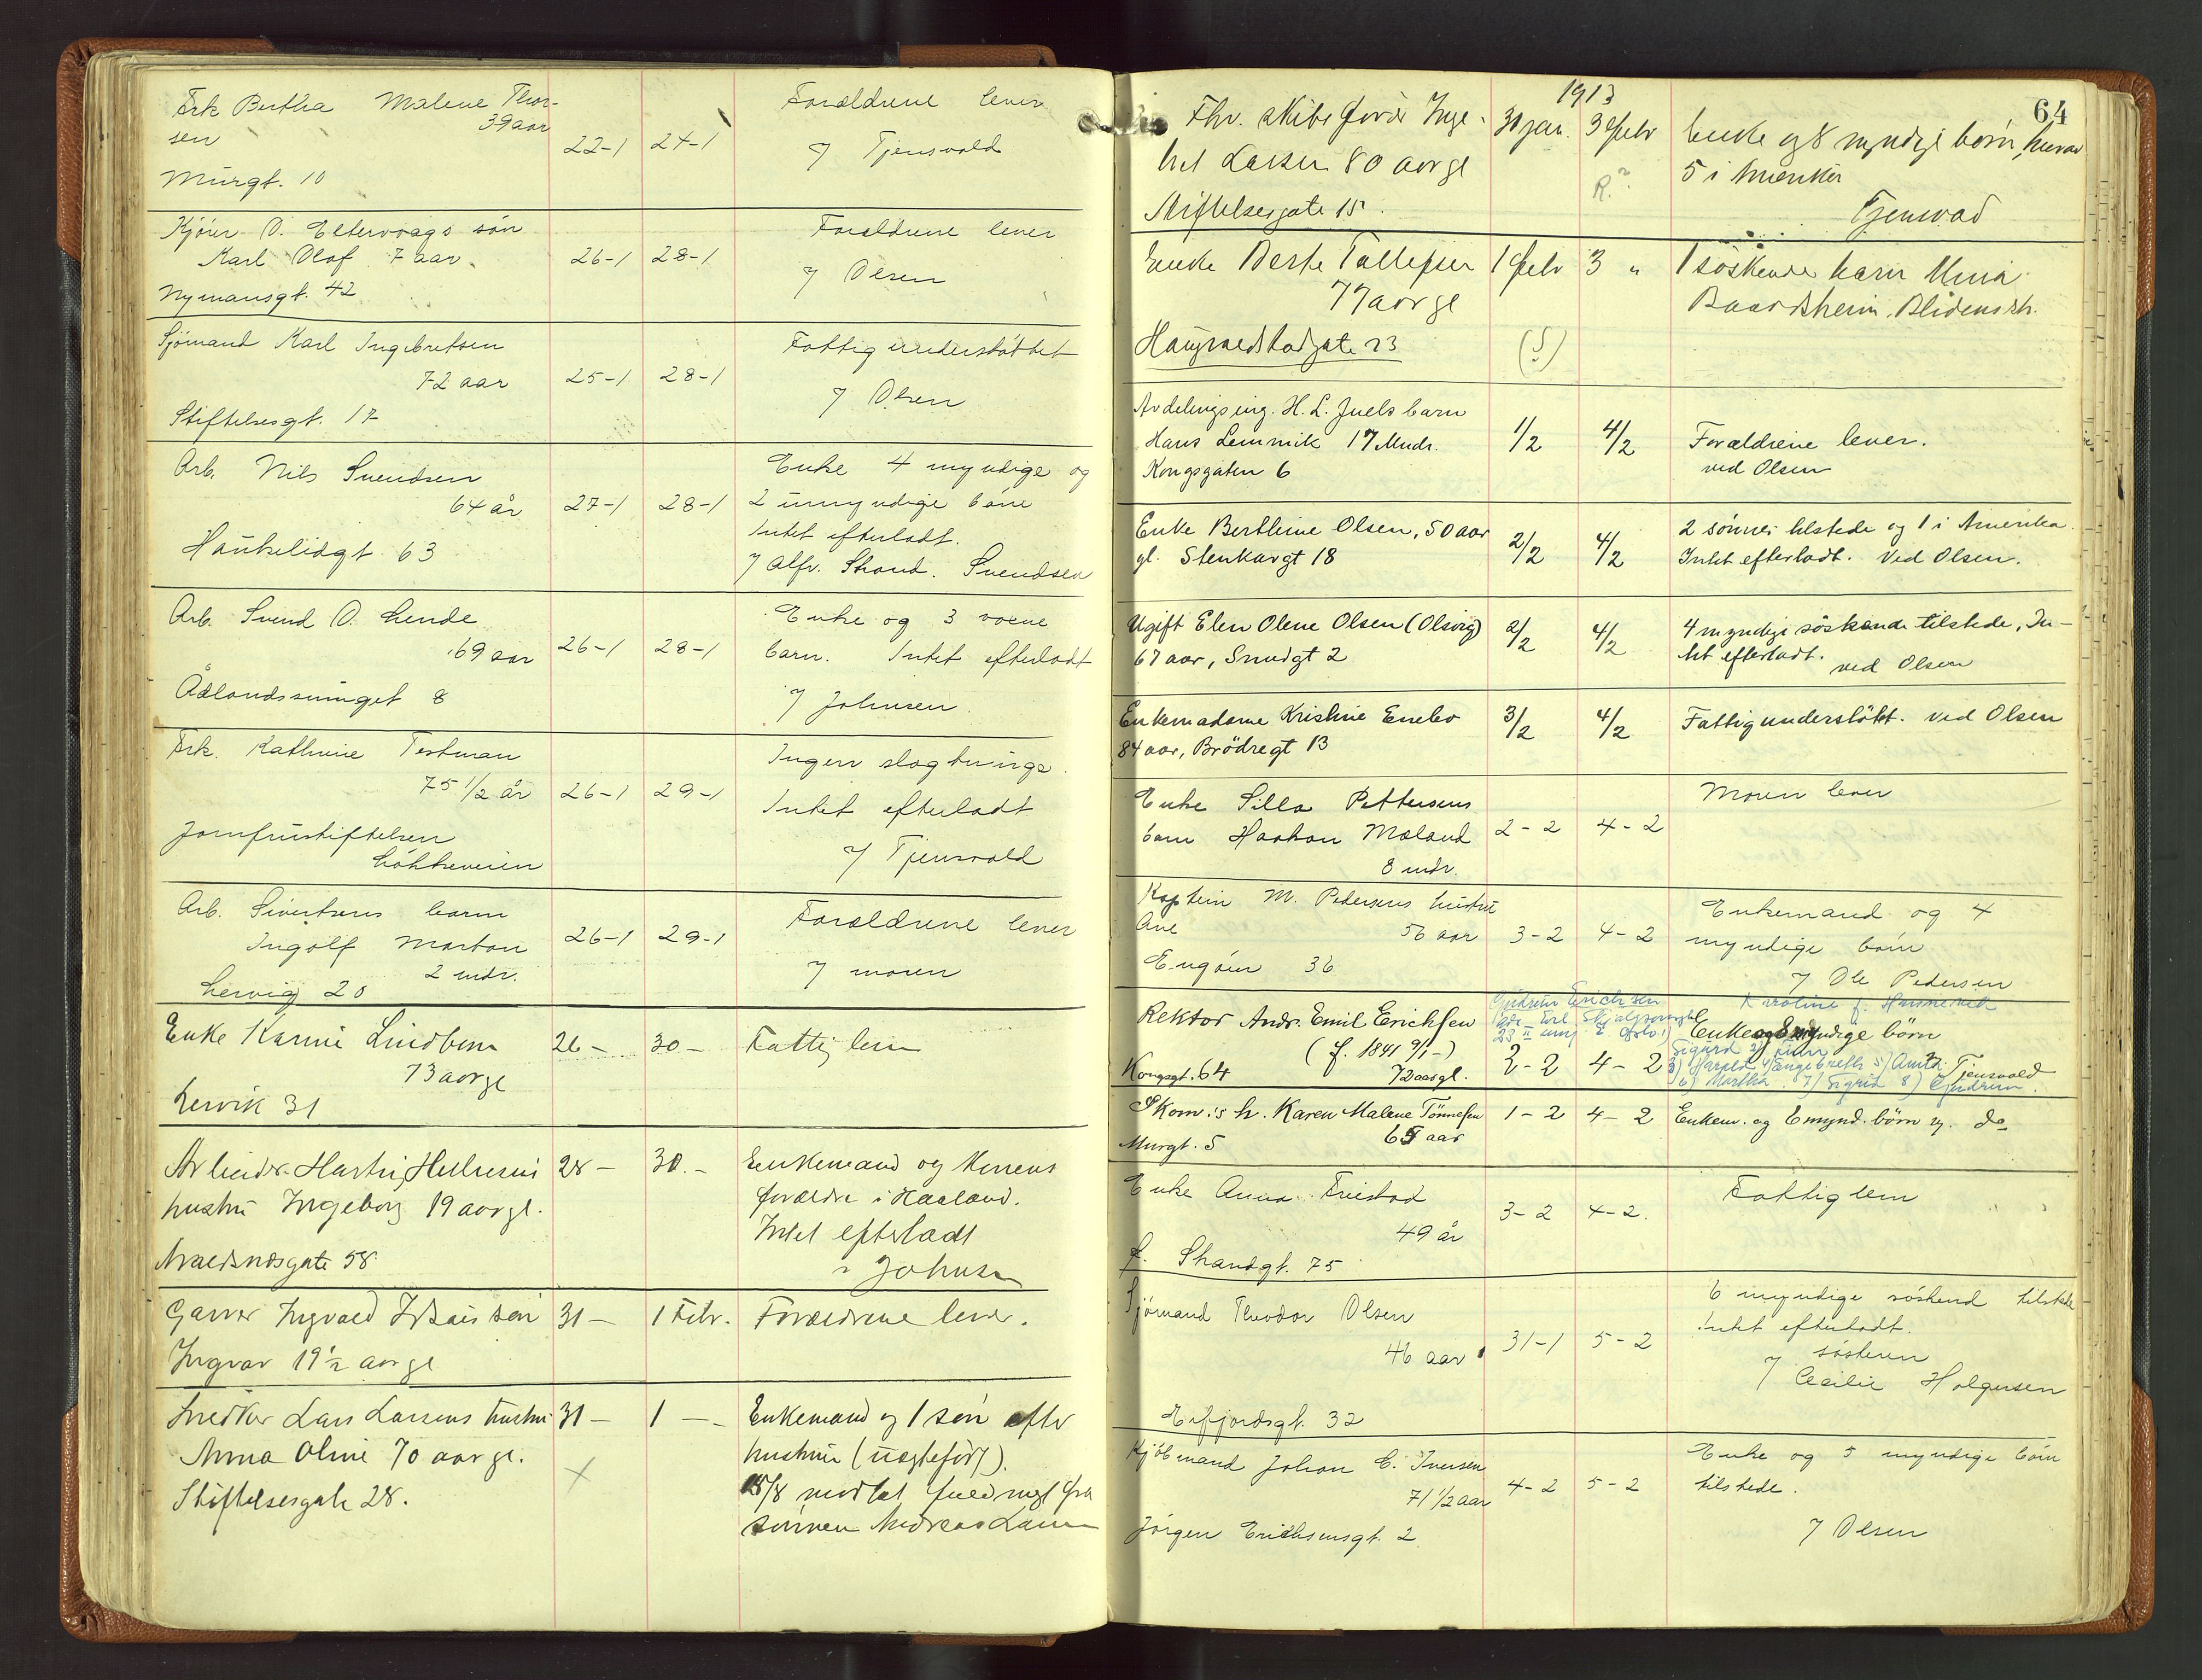 Frk Bertha Malene Thor-
sen 39 aar 22-1 24-1 Forældrene lever
Murgt. 10 v/ Tjensvold
Kjører O. Eltervaags søn Forældrene lever
Karl Olaf 7 aar 26-1 28-1
Nymansgt. 42 v/ Olsen
Sjömand Karl Ingebretsen Fattigunderstöttet
72 aar 25-1 28-1
Stiftelsesgt. 17 v/ Olsen
Arb. Nils Svendsen Enke 4 myndige og
64 år 27-1 28-1 2 umyndige börn
Haukelidgt 63 Intet efterladt.
v/ Alfr. Strand. Svendsen
Arb. Svend O. Lende Enke og 3 voxne
69 aar 26-1 28-1 barn. Intet efterladt
Ådlandssvinget 8 v/ Johnsen
Frk. Kathrine Testman Ingen slagtninge.
75 1/2 år 26-1 29-1 Intet efterladt
Jomfrustiftelsen v/ Tjensvold
Lökkeveien
Arb. Sivertsens barn Forældrene lever
Ingolf Morton 26-1 29-1
2 mdr. v/ moren
Lervig 20
Enke Karine Lindbom 26 - 30 - Fattiglem
73 aar gl
Lervik 31
Arbeider 28 - 30. - Enkemand og konens
hustru Ingeborg 19 aar gl. forældre i Haaland.
Intet efterladt
Avaldsnesgate 58 v Johnsen
Garver Ingvald søn 31 - 1 Febr. Forældrene lever.
Ingvar 19 1/2 aar gl
Snedker Lars Larsens hustru 31 - 1 - Enkemand og 1 søn efter
Anna Oline 70 aar gl. hustru (uægtefødt).
Stiftelsesgate 28. X 15/8 modtat fuldmagt fra
sønnen Andreas Larsen
1913 64
Fhv. skibsfører Inge- 31 jan. 3 febr Enke og 8 myndige børn, hvorav
bret Larsen 80 aar gl R.? 5 i Amerika
Stiftelsesgate 15. Tjensvold
Enke Berte Tollefsen 1 febr 3 " 1 søskende barn
77 aar gl
Haugvaldstadgate 23 (S)
Avdelingsing. H. L. Juels barn
Hans Lemmik 17 Mndr. 1/2 4/2 Forældrene lever.
Kongsgaten 6 ved Olsen
Enke Bertheine Olsen, 50 aar 2/2 4/2 2 sønner tilstede og 1 i Amerika.
gl. Stenkargt 18 Intet efterladt. Ved Olsen.
Ugift Elen Olene Olsen (Olsvig) 2/2 4/2 4 myndige søskende tilstede, In-
67 aar, Smedgt 2 tet efterladt. ved Olsen
Enkemadame Kristine Enebo 3/2 4/2 Fattigunderstøtt. ved Olsen
84 aar, Brödregt 13
Enke Silla Pettersens Moren lever
barn Haakon Mæland 2-2 4-2
8 mdr.
Kaptein M. Pedersens hustru Enkemand og 4
Ane 56 aar 3-2 4-2 myndige börn
Engöien 36 v/ Ole Pedersen
Rektor Andr. Emil Erichsen Gudrun Erichsen
(f. 1841 9/1-) Enke og 8 myndige børn
Kongsgt. 64 72 aar gl. 2-2 4-2 Tjensvold
3) Harald 4) Ingebreth 5) Anna
6) Martha 7) Sigrid 8) Gudrun.
Skom.'s h. Karen Malene Tønnesen 1-2 4-2 Enkem. og 6 mynd. børn v. do
65 aar
Murgt. 5
Enke Anna Freistad Fattiglem
49 år 3-2 4-2.
f. Strandgt. 75
Sjömand Theodor Olsen 6 myndige söskend tilstede
46 aar 31-1 5-2 Intet efterladt.
søsteren
v/ Cecilie Holgersen
Erfjordsgt. 32
Kjöbmand Johan C. Iversen Enke og 5 myndige börn
71 1/2 aar 4-2 5-2 tilstede.
Jörgen Erichsensgt. 2 v/ Olsen